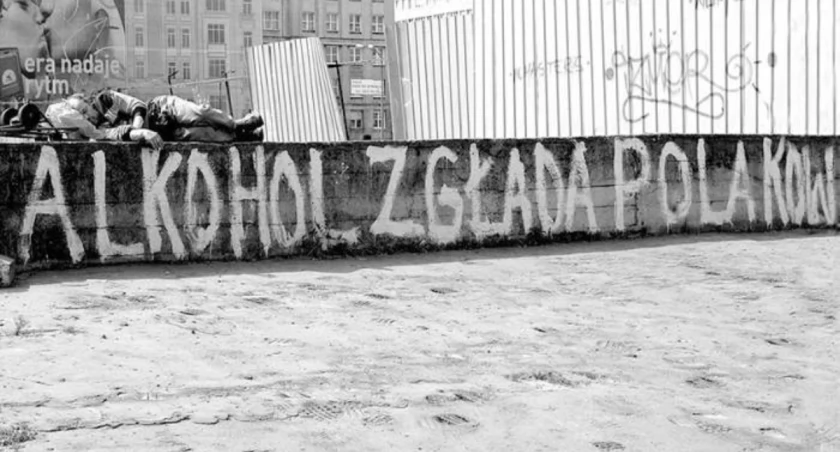 era nadaje
rytm
ALKOHOL ZGŁADA POLAKOW